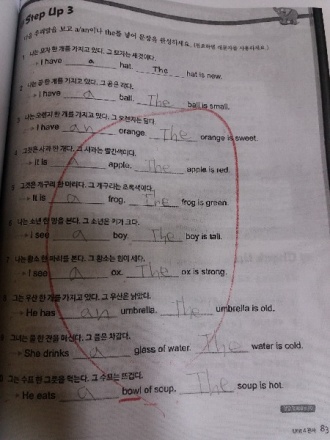 Step Up 3
다음 우리말을 보고 a/an이나 the를 넣어 문장을 완성하세요. (필요하면 대문자를 사용하세요.)
1 나는 모자 한 개를 가지고 있다. 그 모자는 새것이다.
→ I have a hat. The hat is new.
2 나는 공 한 개를 가지고 있다. 그 공은 작다.
→ I have a ball. The ball is small.
3 나는 오렌지 한 개를 가지고 있다. 그 오렌지는 달다.
→ I have an orange. The orange is sweet.
4 그것은 사과 한 개다. 그 사과는 빨간색이다.
→ It is a apple. The apple is red.
5 그것은 개구리 한 마리다. 그 개구리는 초록색이다.
→ It is a frog. The frog is green.
6 나는 소년 한 명을 본다. 그 소년은 키가 크다.
→ I see a boy. The boy is tall.
7 나는 황소 한 마리를 본다. 그 황소는 힘이 세다.
→ I see a ox. The ox is strong.
8 그는 우산 한 개를 가지고 있다. 그 우산은 낡았다.
→ He has an umbrella. The umbrella is old.
9 그녀는 물 한 잔을 마신다. 그 물은 차갑다.
→ She drinks a glass of water. The water is cold.
그는 수프 한 그릇을 먹는다. 그 수프는 뜨겁다.
He eats a bowl of soup. The soup is hot.
83